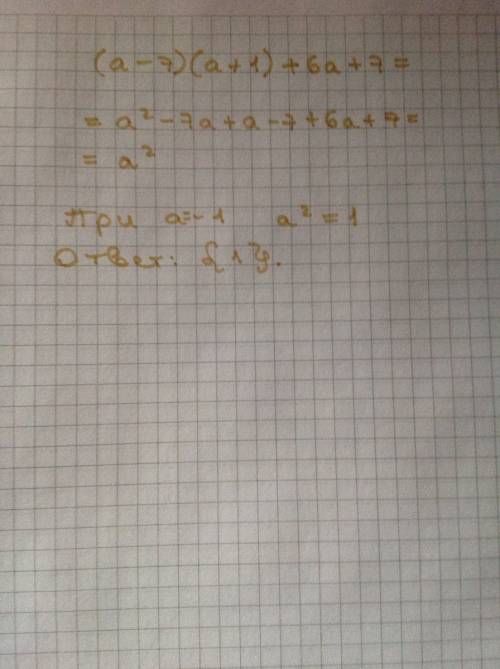 (a-7)(a+1)+6a+7=
= a²-7a+a-7+6a+7=
= a²
При a=-1 a²=1
Ответ: {1}.